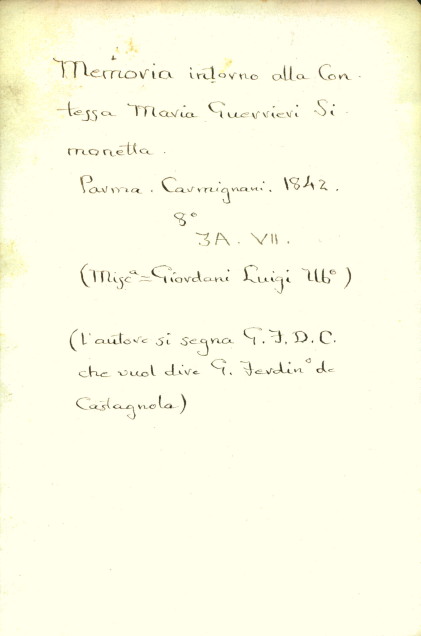 Memoria intorno alla Con-
tessa Maria Guerrieri Si-
monetta.
Parma. Carmignani. 1842.
8°
3A. VII.
(Miscª = Giordani Luigi Ub°)
(L'autore si segna G. F. D. C.
che vuol dire G. Ferdin° de
Castagnola)